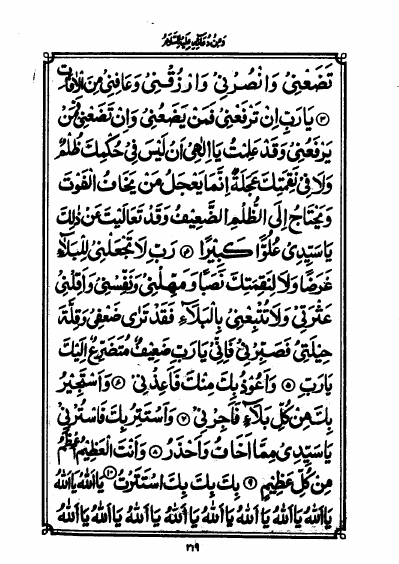 وَمِنْ دُعَائِهِ عَلَيْهِ السَّلَامُ
تَضَعْنِىْ وَانْصُرْنِىْ وَارْزُقْنِىْ وَعَافِنِىْ مِنَ الْاٰفَاتِ
③ يَارَبِّ اِنْ تَرْفَعْنِىْ فَمَنْ يَضَعُنِىْ وَاِنْ تَضَعْنِىْ فَمَنْ
يَرْفَعُنِىْ وَقَدْ عَلِمْتُ يَا اِلٰهِىْ اَنْ لَيْسَ فِىْ حُكْمِكَ ظُلْمٌ
وَلَا فِىْ نَقِمَتِكَ عَجَلَةٌ اِنَّمَا يَعْجَلُ مَنْ يَخَافُ الْفَوْتَ
وَيَحْتَاجُ اِلَى الظُّلْمِ الضَّعِيْفُ وَقَدْ تَعَالَيْتَ عَنْ ذٰلِكَ
يَا سَيِّدِىْ عُلُوًّا كَبِيْرًا ④ رَبِّ لَا تَجْعَلْنِىْ لِلْبَلَآءِ
غَرَضًا وَلَا لِنَقِمَتِكَ نَصَبًا وَمَهِّلْنِىْ وَنَفِّسْنِىْ وَاَقِلْنِىْ
عَثْرَتِىْ وَلَا تُتْبِعْنِىْ بِالْبَلَآءِ فَقَدْ تَرٰى ضَعْفِىْ وَقِلَّةَ
حِيْلَتِىْ فَصَبِّرْنِىْ فَاِنِّىْ يَارَبِّ ضَعِيْفٌ مُتَضَرِّعٌ اِلَيْكَ
يَارَبِّ ⑤ وَاَعُوْذُ بِكَ مِنْكَ فَاَعِذْنِىْ ⑥ وَاَسْتَجِيْرُ
بِكَ مِنْ كُلِّ بَلَآءٍ فَاَجِرْنِىْ ⑦ وَاَسْتَتِرُ بِكَ فَاسْتُرْنِىْ
يَا سَيِّدِىْ مِمَّا اَخَافُ وَاَحْذَرُ ⑧ وَاَنْتَ الْعَظِيْمُ اَعْظَمُ
مِنْ كُلِّ عَظِيْمٍ ⑨ بِكَ بِكَ بِكَ اسْتَتَرْتُ ⑩ يَا اَللّٰهُ يَا اَللّٰهُ
يَا اَللّٰهُ يَا اَللّٰهُ يَا اَللّٰهُ يَا اَللّٰهُ يَا اَللّٰهُ يَا اَللّٰهُ يَا اَللّٰهُ يَا اَللّٰهُ